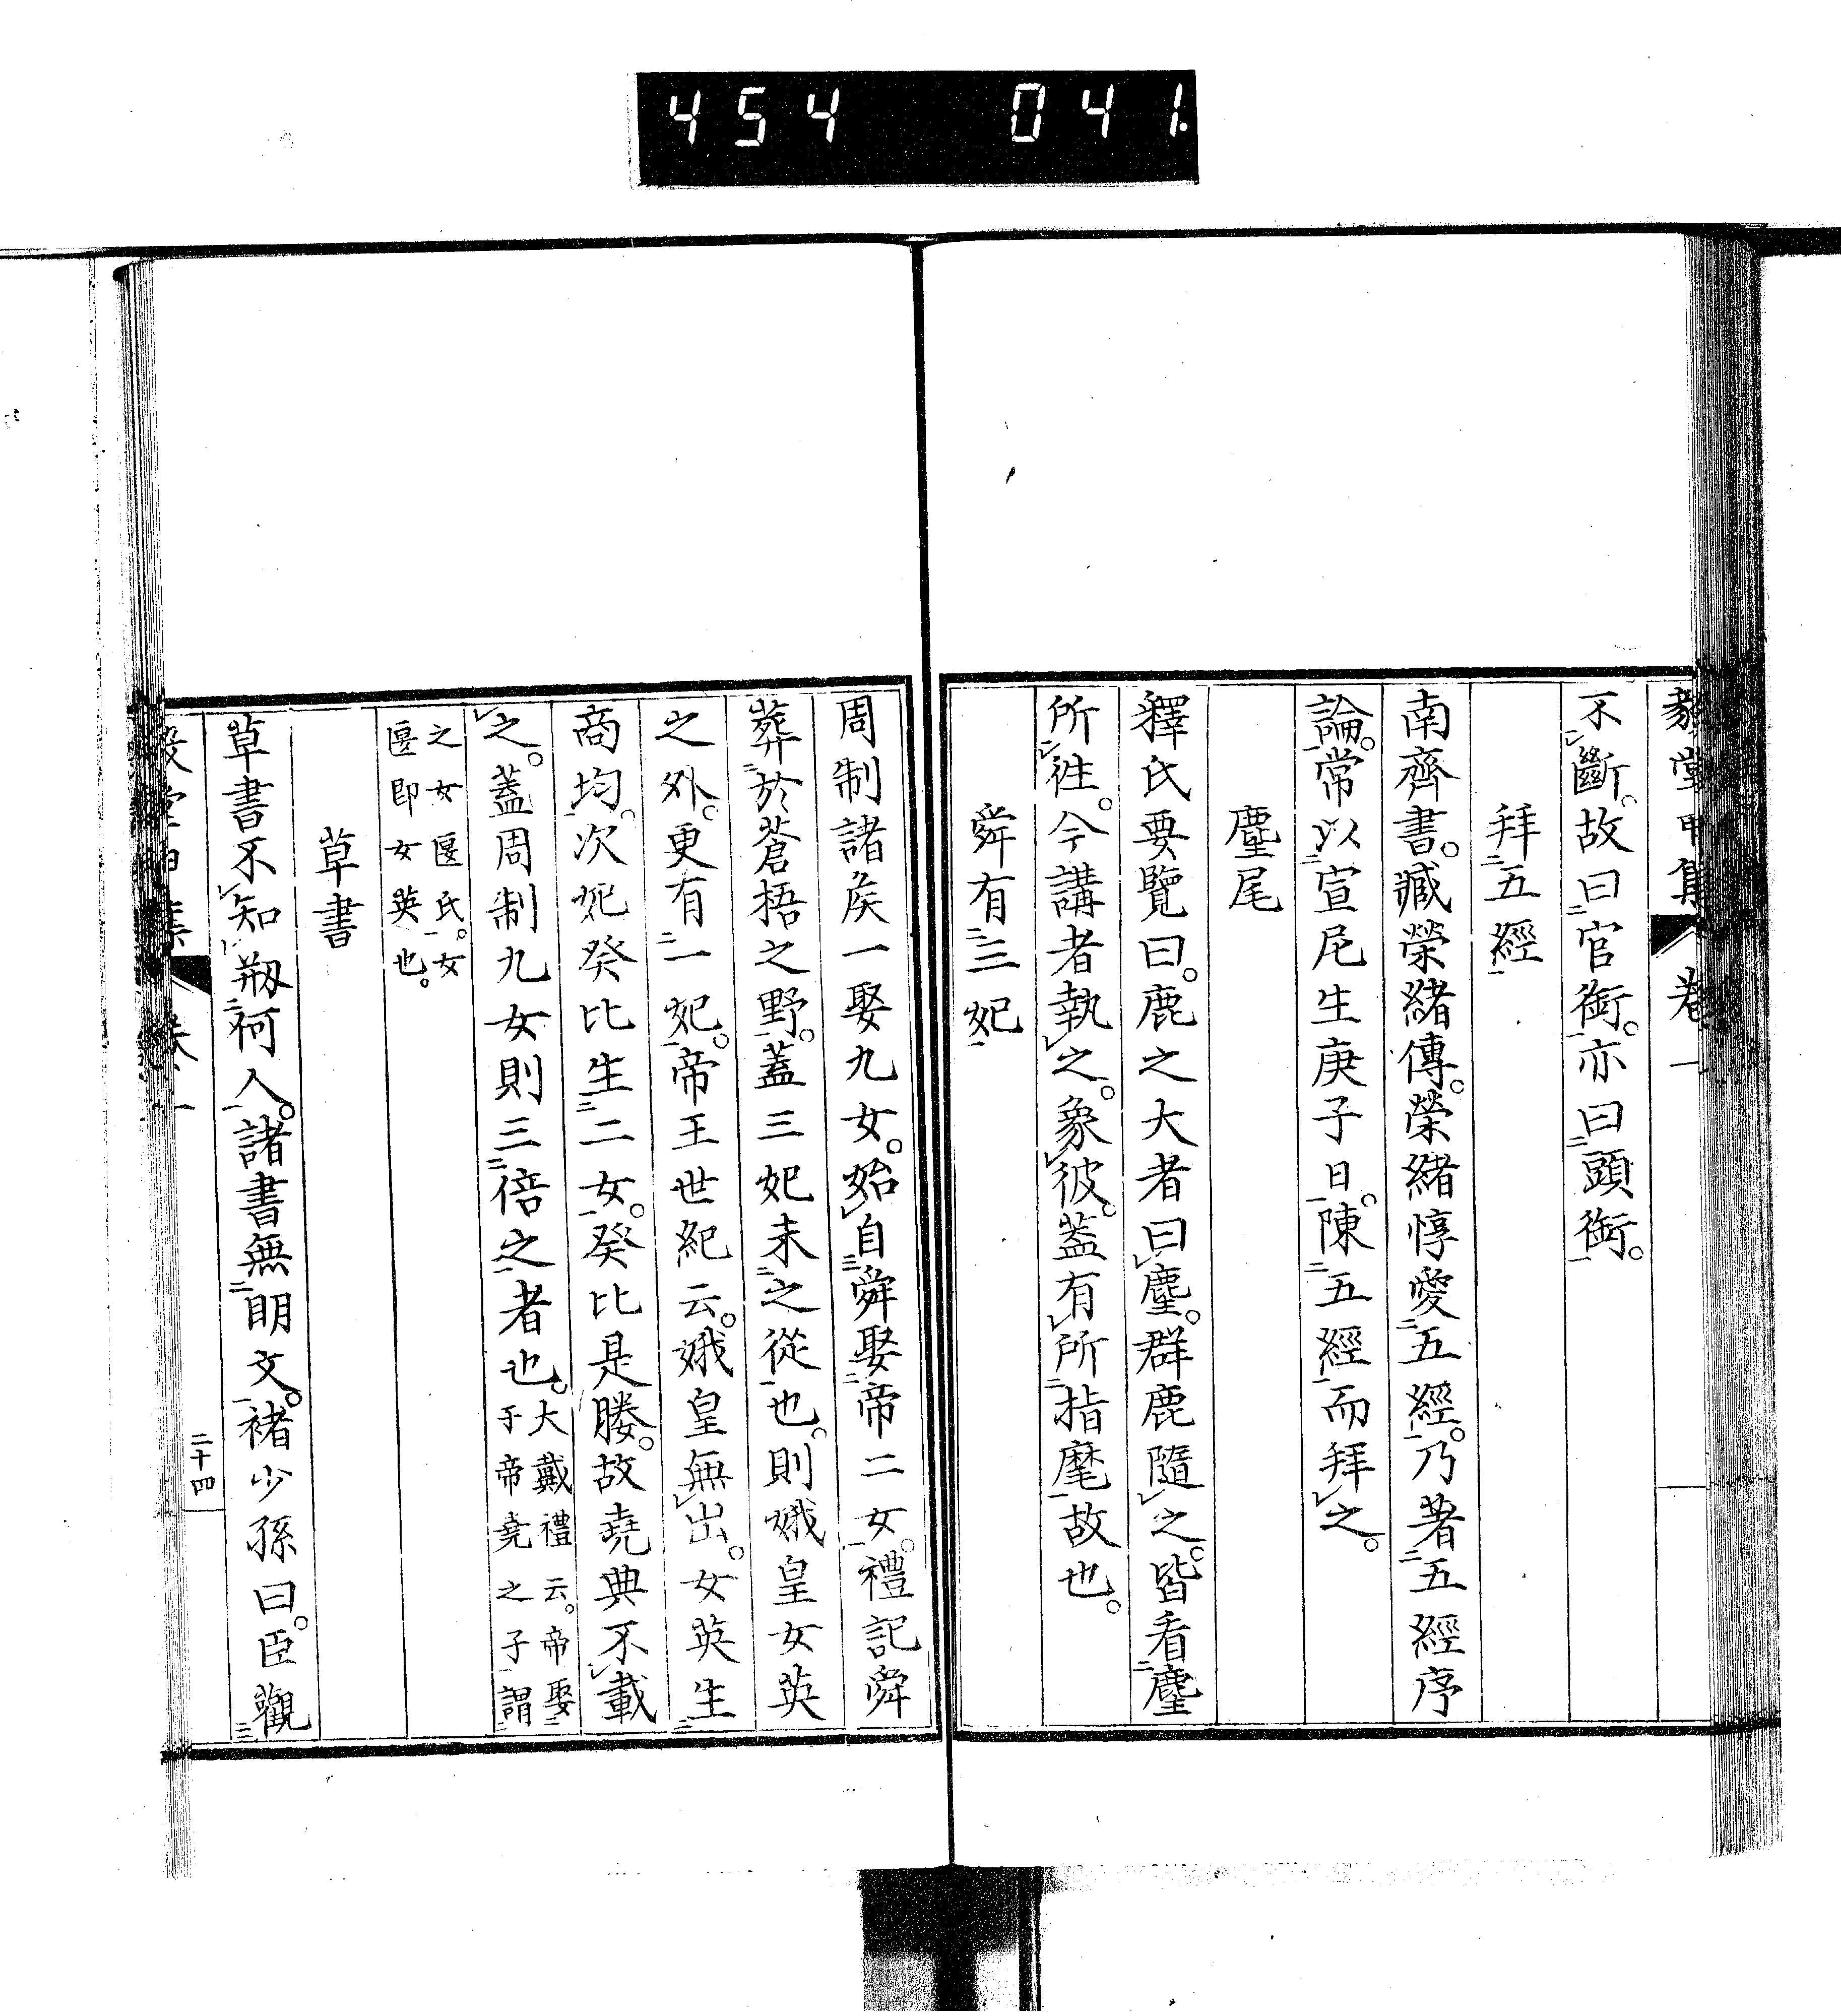 454 041.
毅堂甲集 卷一
不斷。故曰官銜。亦曰頭銜。
拜五經
南齊書。臧榮緒傳。榮緒惇愛五經。乃著五經序
論。常以宣尼生庚子日。陳五經而拜之。
麈尾
釋氏要覽曰。鹿之大者曰麈。群鹿隨之。皆看麈
所往。今講者執之。象彼。蓋有所指麾故也。
舜有三妃
周制諸矦一娶九女。始自舜娶帝二女。禮記舜
葬於蒼梧之野。蓋三妃未之從也。則娥皇女英
之外。更有一妃。帝王世紀云。娥皇無出。女英生
商均。次妃癸比生二女。癸比是媵。故堯典不載
之。蓋周制九女則三倍之者也。大戴禮云。帝娶于帝堯之子謂
之女匽氏。女匽即女英也。
草書
草書不知刱何人。諸書無明文。褚少孫曰。臣觀
毅堂甲集 卷一 二十四